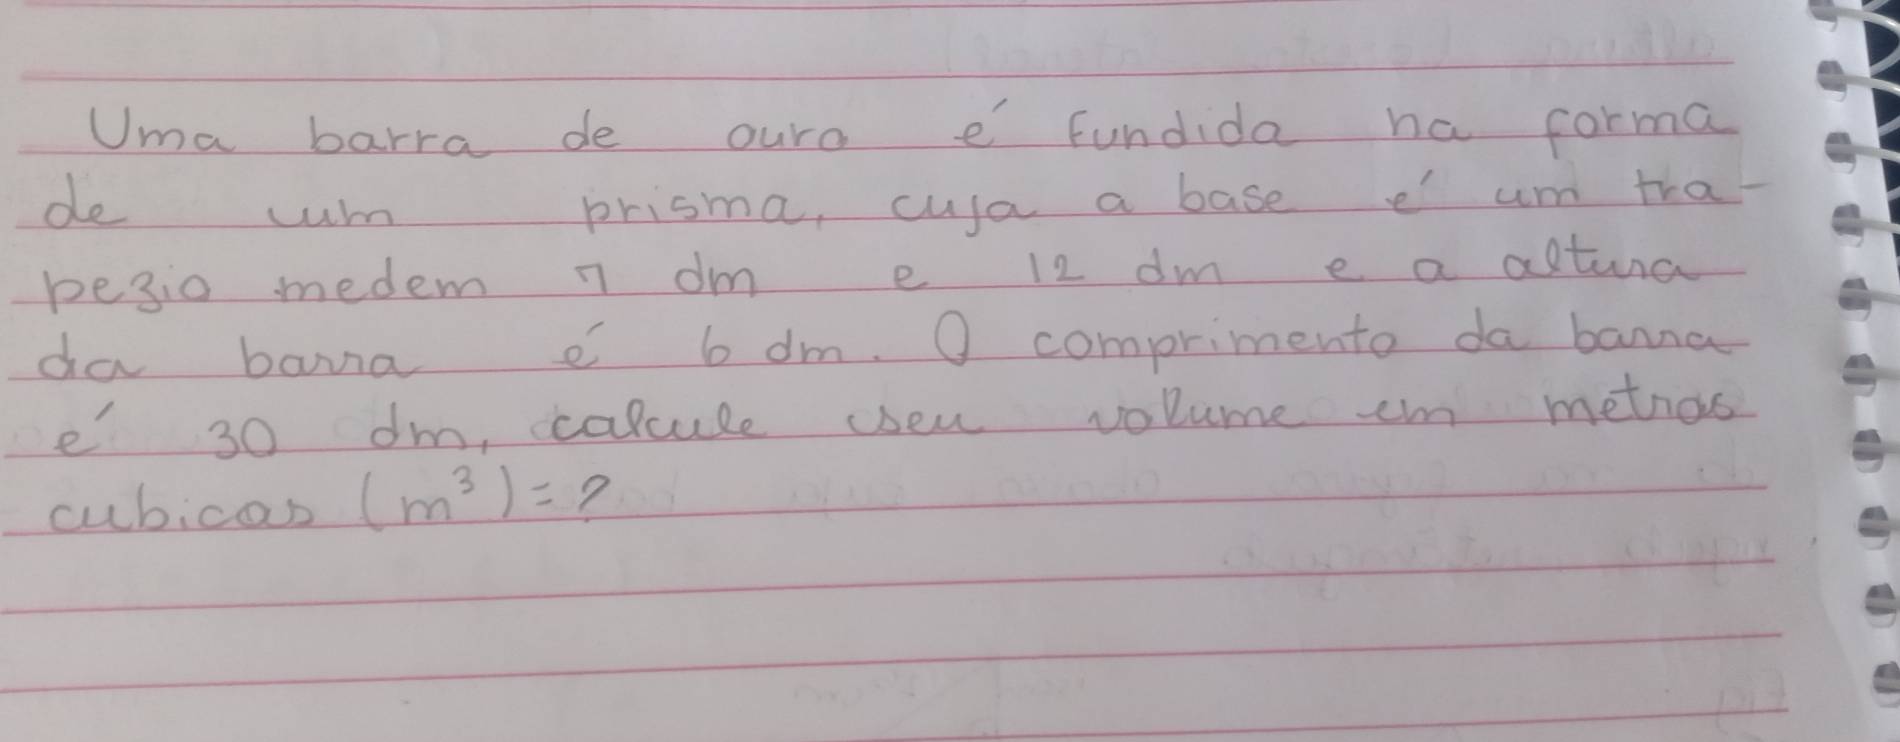 Uma barra de ouro é fundida na forma
de um prisma, cuja a base é um tra-
pezio medem 7 dm e 12 dm e a altura
da barra é 6 dm. O comprimento da barra
é 30 dm, calcule seu volume em metros
cubicos (m³) = ?